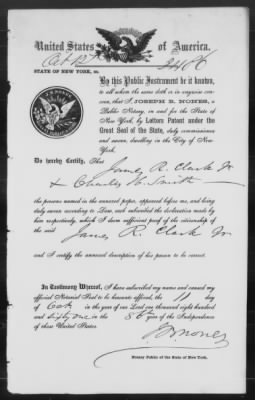 United States of America.
STATE OF NEW YORK, ss.
By this Public Instrument be it known,
to all whom the same doth or in anywise concern,
that I, JOSEPH B. NONES, a
Public Notary, in and for the State of
New York, by Letters Patent under the
Great Seal of the State, duly commissioned
and sworn, dwelling in the City of New
York.
Do hereby Certify, That James R. Clark Jr
& Charles H. Smith
the persons named in the annexed paper, appeared before me, and being
duly sworn according to Law, each subscribed the declaration made by
him respectively, which I deem sufficient proof of the citizenship of
the said James R. Clark Jr
and I certify the annexed description of his person to be correct.
In Testimony Whereof, I have subscribed my name and caused my
official Notarial Seal to be hereunto affixed, the 11 day
of Oct in the year of our Lord one thousand eight hundred
and sixty one in the 86 year of the Independence
of these United States.
JB Nones
Notary Public of the State of New York.